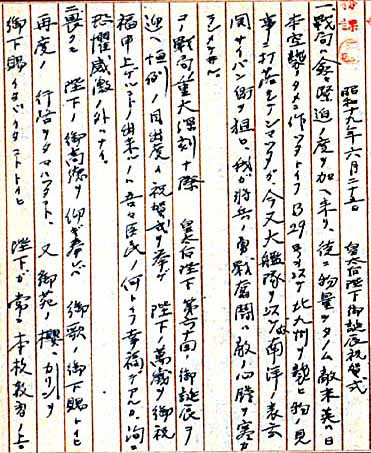 昭和十九年六月二十五日 皇太后陛下御誕辰祝賀式
一、戦局ハ愈々緊迫ノ度ヲ加ヘ来リ、徒ニ物量ヲタノム敵米英ハ日
本空襲ノタメニ作ツタトイフB29ヲ以テ北九州ヲ襲ヒ物ノ見
事ニ打落サレテシマツタガ、今又大艦隊ヲ以テ南洋ノ表玄
関サイパン島ヲ狙ヒ、我ガ将兵ノ勇戦奮闘ハ敵ノ心膽ヲ寒カ
ラシメテヰル。
コノ戦局重大深刻ナ際 皇太后陛下第六十回ノ御誕辰ヲ
迎ヘ恒例ノ目出度イ祝賀式ヲ挙ゲ 陛下ノ萬歳ヲ御祝
福申上ゲルコトノ出来ルノハ吾々臣民ノ何トイフ幸福デアルカ、洵ニ
恐懼感激ノ外ハナイ。
二、畏クモ 陛下ノ御高徳ヲ仰ギ奉ルニ 御歌ノ御下賜トイヒ
再度ノ 行啓ヲタマハツタコト、又御苑ノ櫻、カリンヲ
御下賜イタダイタコトトイヒ 陛下ガ常ニ本校教育ノ上ニ